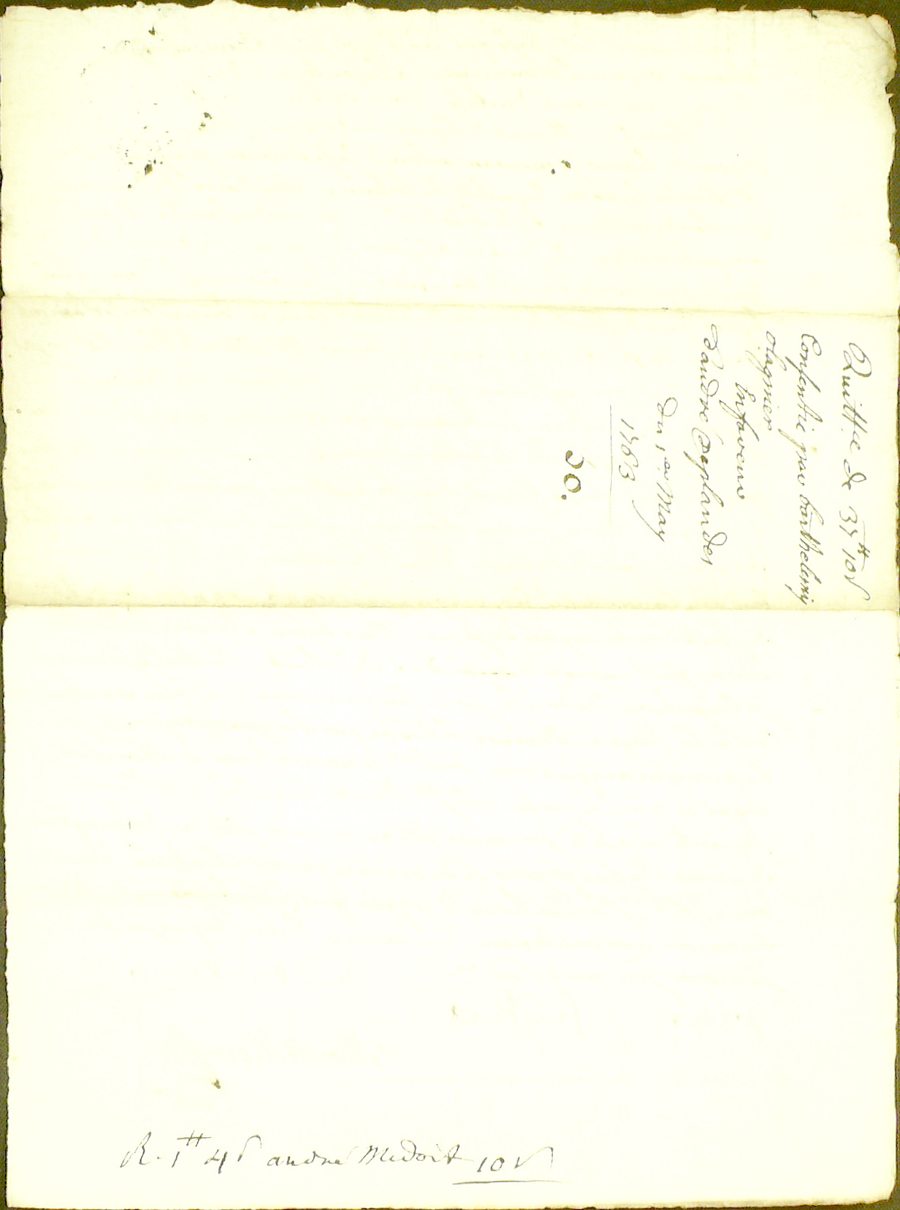 Quitt.e de 37₶ 10s
Consentie par barthelemy
olagnier
En faveur
D'andre Desplandes
Du 1er May
1763
30.
R. 1₶ 4s andré Me doit 10s